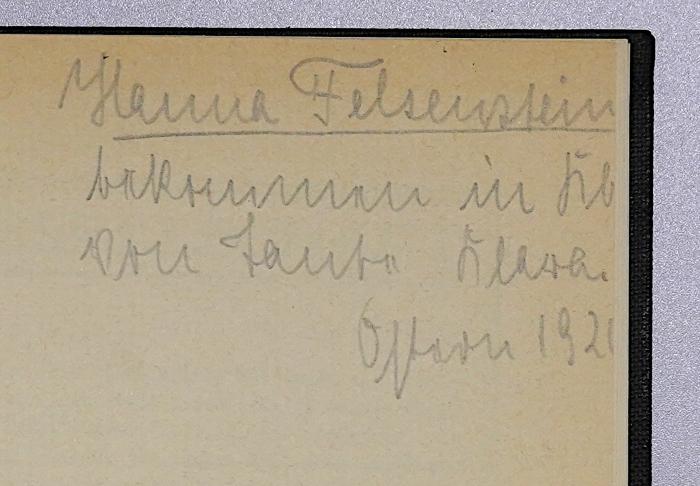 Hanna Felsenstein
bekommen in Kb
von Tante Klara.
Ostern 192